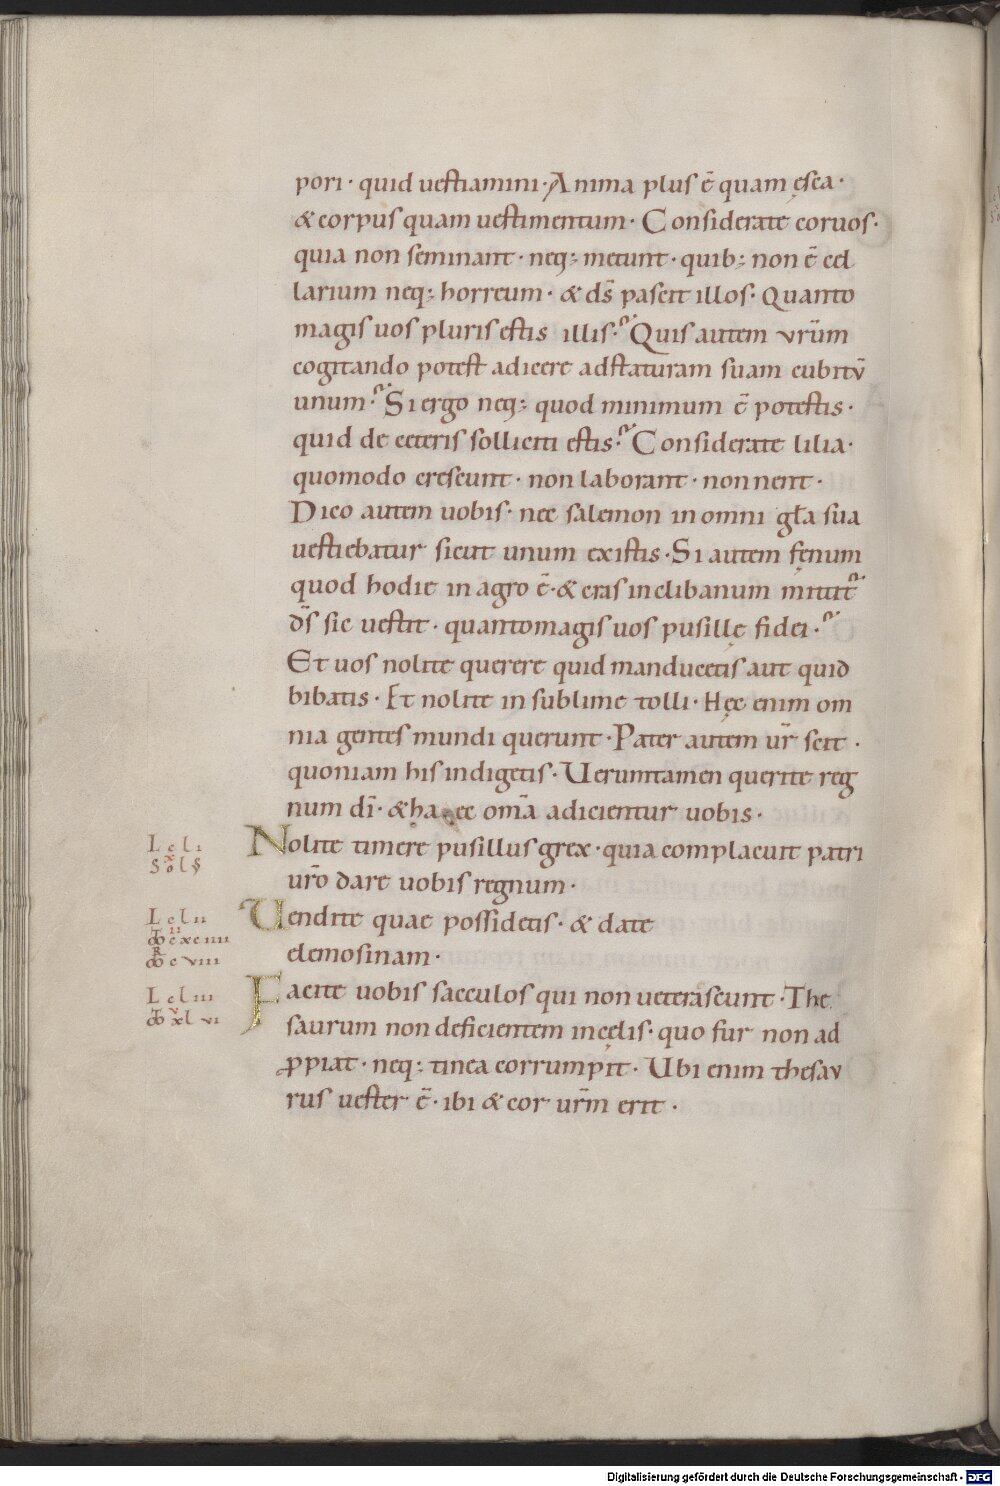 pori · quid uestiamini · Anima plus ē quam ęsca ·
& corpus quam uestimentum · Considerate coruos ·
quia non seminant · neq; metunt · quib; non ē cel
larium neq; horreum · & ds̄ pascit illos · Quanto
magis uos pluris estis illis · Quis autem vrūm
cogitando potest adicere adstaturam suam cubitv̄
unum · Si ergo neq; quod minimum ē potestis ·
quid de ceteris solliciti estis · Considerate lilia ·
quomodo crescunt · non laborant · non nent ·
Dico autem uobis · nec salemon in omni gła sua
uestiebatur sicut unum ex istis · Si autem fęnum
quod hodie in agro ē · & cras in clibanum mittit
ds̄ sic uestit · quantomagis uos pusillę fidei ·
Et uos nolite querere quid manducetis aut quid
bibatis · Et nolite in sublime tolli · Hęc enim om
nia gentes mundi querunt · Pater autem ur̄ scit ·
quoniam his indigetis · Ueruntamen querite reg
num dī · & haec om̄a adicientur uobis ·
L c l i
Nolite timere pusillus grex · quia complacuit patri
sol
ur̄o dare uobis regnum ·
L c l ii
Uendite quae possidetis · & date
ii
c xc iiii
elemosinam ·
R
c viii
L c l iii
Facite uobis sacculos qui non ueterascunt · The
v
xl vi
saurum non deficientem in cęlis · quo fur non ad
ꝓpiat · neq; tinea corrumpit · Ubi enim thesav
rus uester ē · ibi & cor ur̄m erit ·
Digitalisierung gefördert durch die Deutsche Forschungsgemeinschaft - DFG